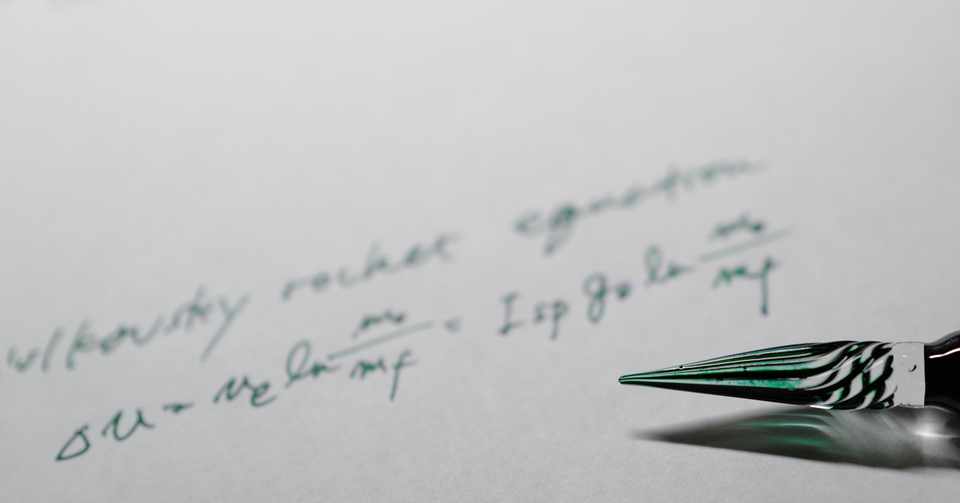 olkovsky rocket equation
Δv = ve ln m0/mf = Isp g0 ln m0/mf